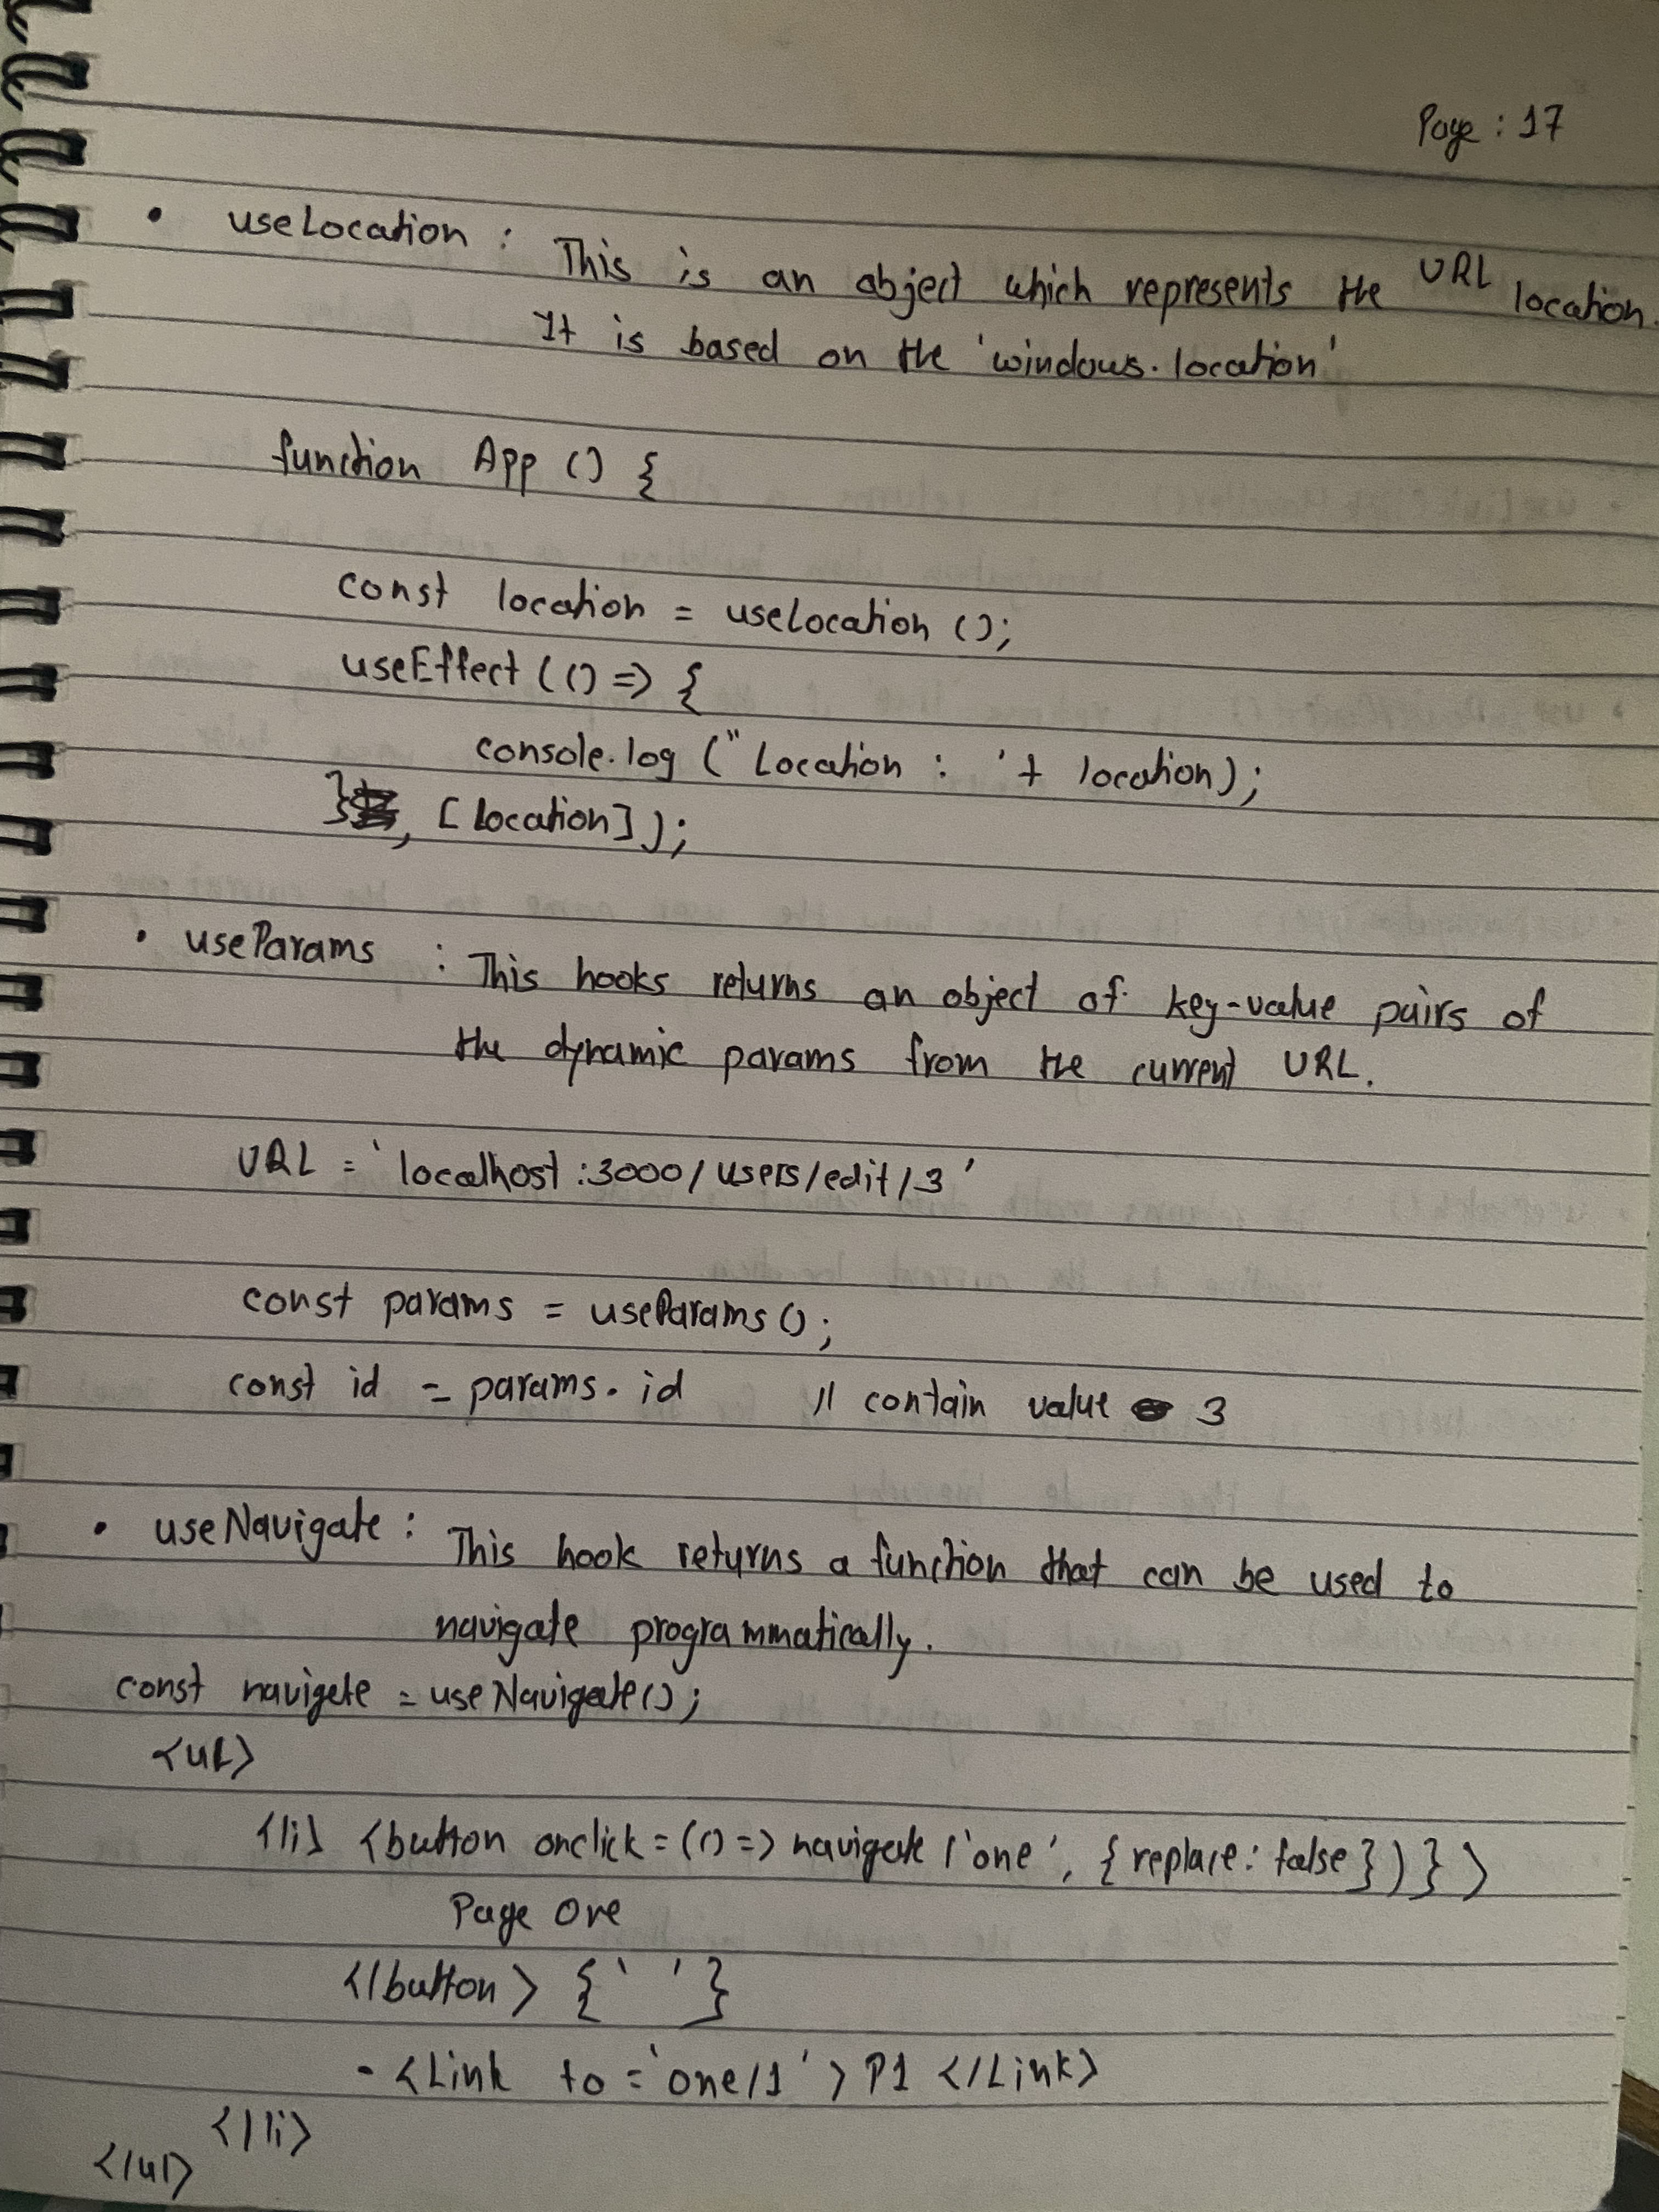 Page : 17
• useLocation : This is an object which represents the URL location.
It is based on the 'windows.location'
function App () {
const location = useLocation ();
useEffect (() => {
console.log ("Location : '+ location);
}, [location]);
• useParams : This hooks returns an object of key-value pairs of
the dynamic params from the current URL.
URL = 'localhost:3000/users/edit/3'
const params = useParams();
const id = params.id // contain value 3
• useNavigate : This hook returns a function that can be used to
navigate programmatically.
const navigate = useNavigate();
<ul>
<li> <button onclick = (() => navigate ('one', {replace: false})}>
Page One
</button> {' '}
- <Link to = 'one/1'> P1 </Link>
</li>
</ul>